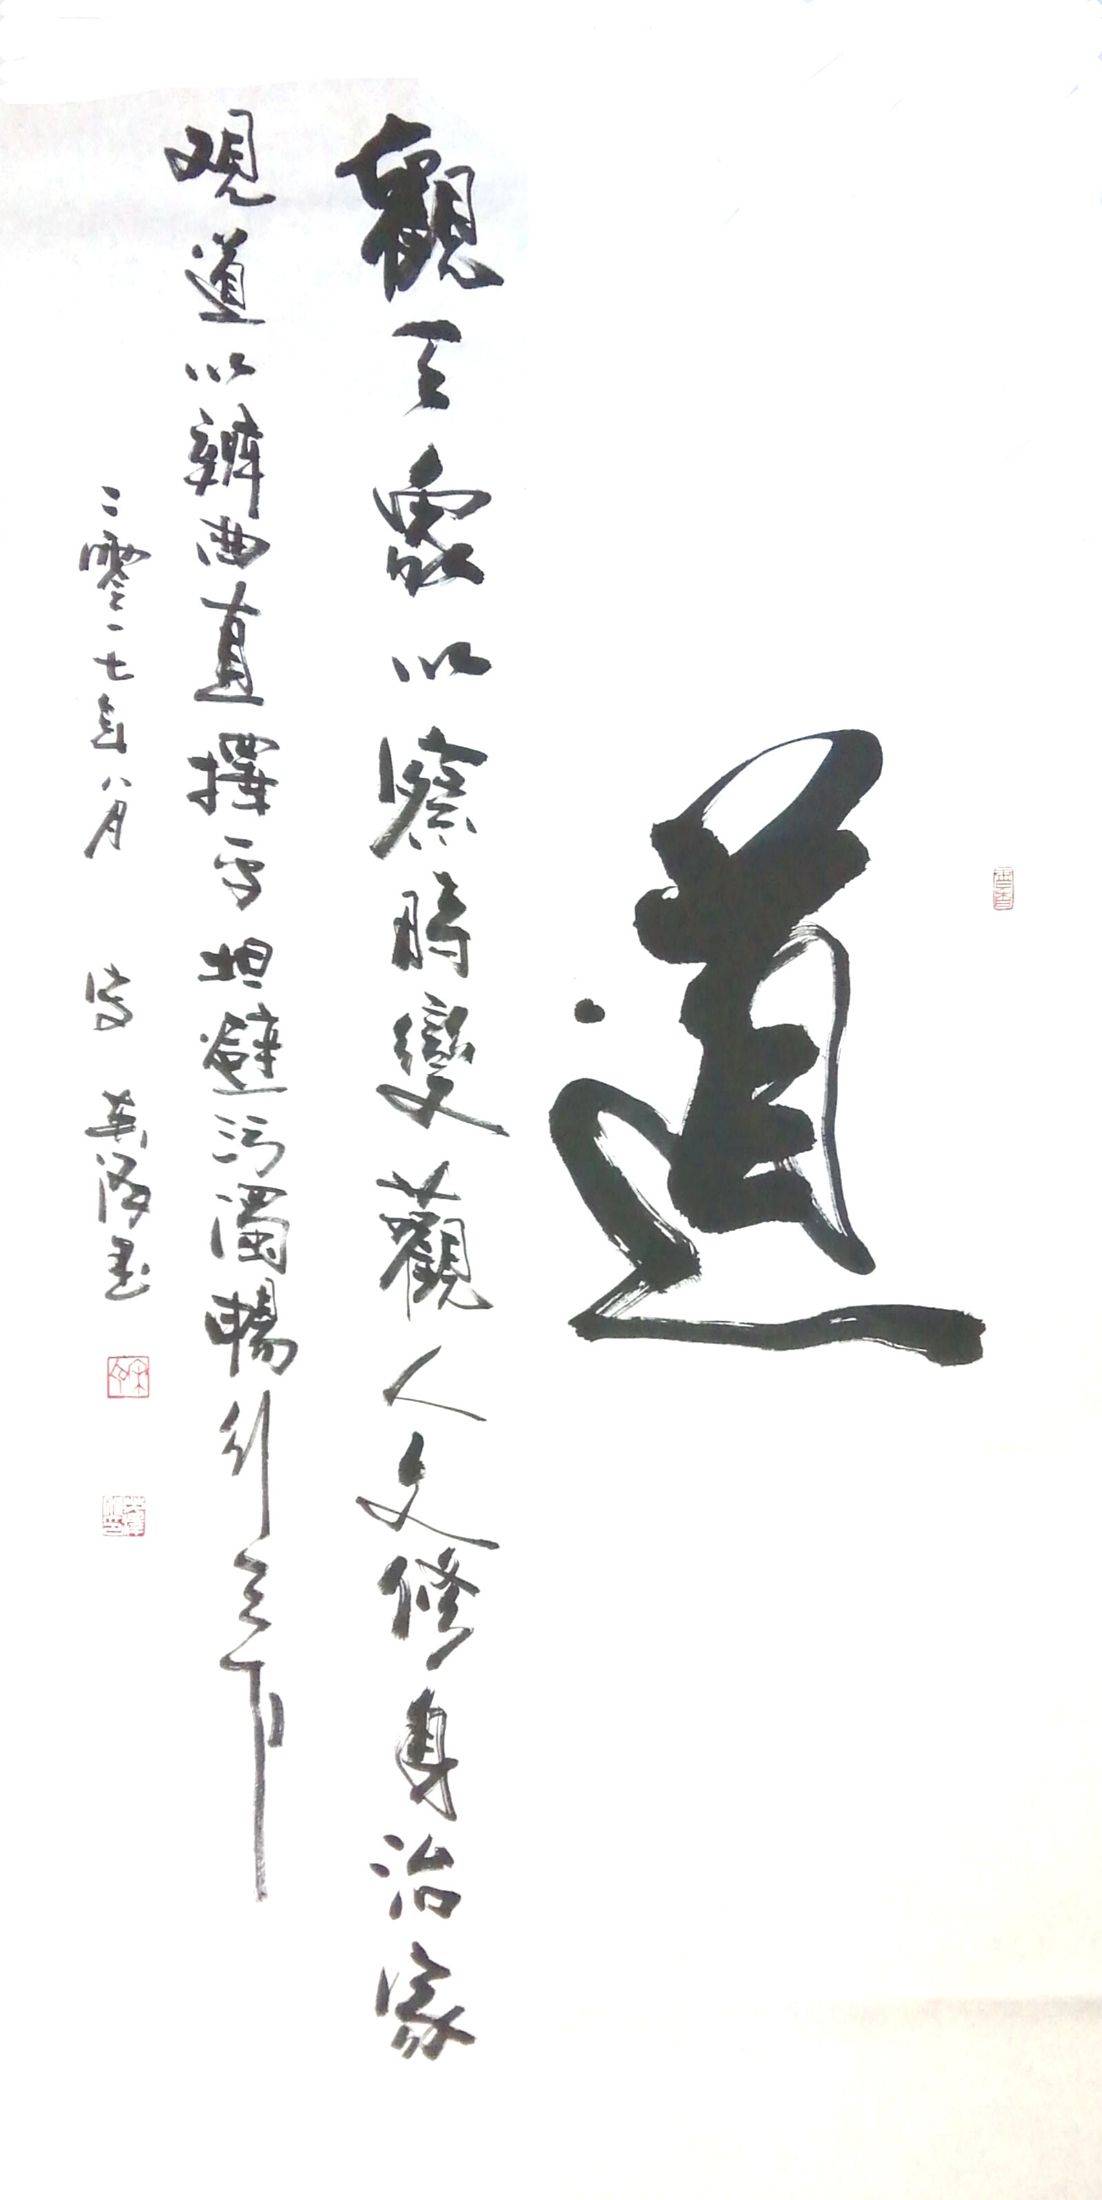 道
觀天象以察時變觀人文修身治家
观道以辨曲直擇平坦避污濁暢行天下
二零一七年八月 英澤书